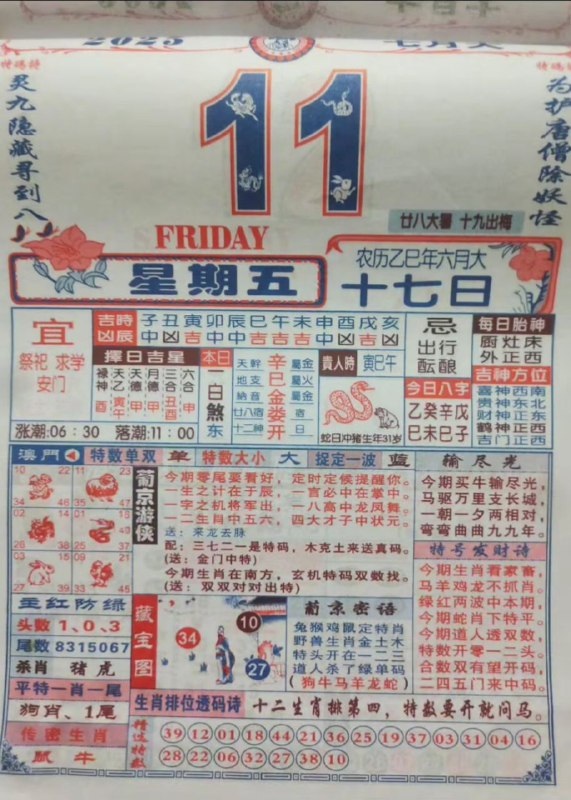 2025
七月大
特码诗
灵九隐藏寻到八
特码诗
为护唐僧除妖怪
11
廿八大暑 十九出梅
FRIDAY
星期五
农历乙巳年六月大
十七日
宜
祭祀 求学
安门
吉時凶辰
子 丑 寅 卯 辰 巳 午 未 申 酉 戌 亥
忌
出行
酝酿
每日胎神
厨灶床
外正西
擇日吉星
禄神 天乙 天德 月德 三合 六合
酉 寅午 甲 甲 丑酉 申
本日
一白煞东
天幹 辛 屬金
地支 巳 屬火
納音 金 屬金
廿八宿 娄 宿
十二神 开 日
貴人時 寅巳午
蛇日冲猪生年31岁
今日八字
乙癸辛戊
巳未巳子
吉神方位
喜神西南
贵神东北
财神正东
鹤神正西
吉门正西
涨潮:06:30 落潮:11:00
澳門
特数单双 单 特数大小 大 捉定一波 蓝
输尽光
10 22
34 46
11 23
35 47
06 18
01 13
03 15
27 39
09 21
33 45
葡京游侠
今期零尾要看好，定时定候提醒你。
一生之计在于辰，一言必中在掌中。
一字之机将军出，一八高中龙凤舞。
一二生肖中五六，四大才子中状元。
送：来龙去脉
配：三七二一是特码，木克土来送真码。
(送：金门中特)
今期生肖在南方，玄机特码双数找。
(送：双双对对出特)
今期买牛输尽光，
马驱万里支长城，
一朝一夕两相对，
弯弯曲曲九九年。
特号发财诗
今期生肖看家畜，
马羊鸡龙不抓肖。
绿红两波中本期，
今期蛇肖下特平。
今期道人透双数，
特数开零一二头。
合数双有望开码，
二四五门来中码。
主红防绿
头数1、0、3
尾数8315067
杀肖 猪虎
平特一肖一尾
狗肖、1尾
传密生肖
鼠 牛
藏宝图
34
10
27
葡京密语
兔猴鸡鼠定特肖
野兽生肖金土木
特头开在一二三
道人杀了绿单码
(狗牛马羊龙蛇)
生肖排位透码诗
十二生肖排第四，特数要开就问马。
精选特数
39 12 01 18 44 21 36 24 19 37 03 31 04 16
28 22 06 32 27 38 10